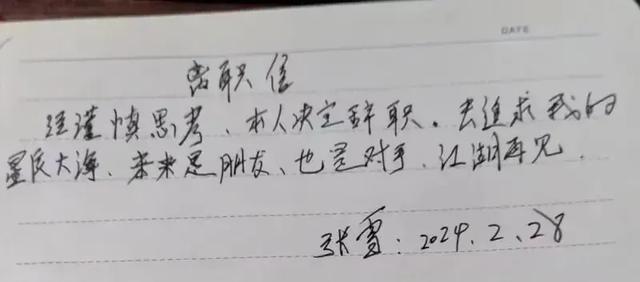 DATE
离职信
经谨慎思考、本人决定辞职。去追求我的
星辰大海、未来是朋友、也是对手、江湖再见.
张雪：2024.2.28